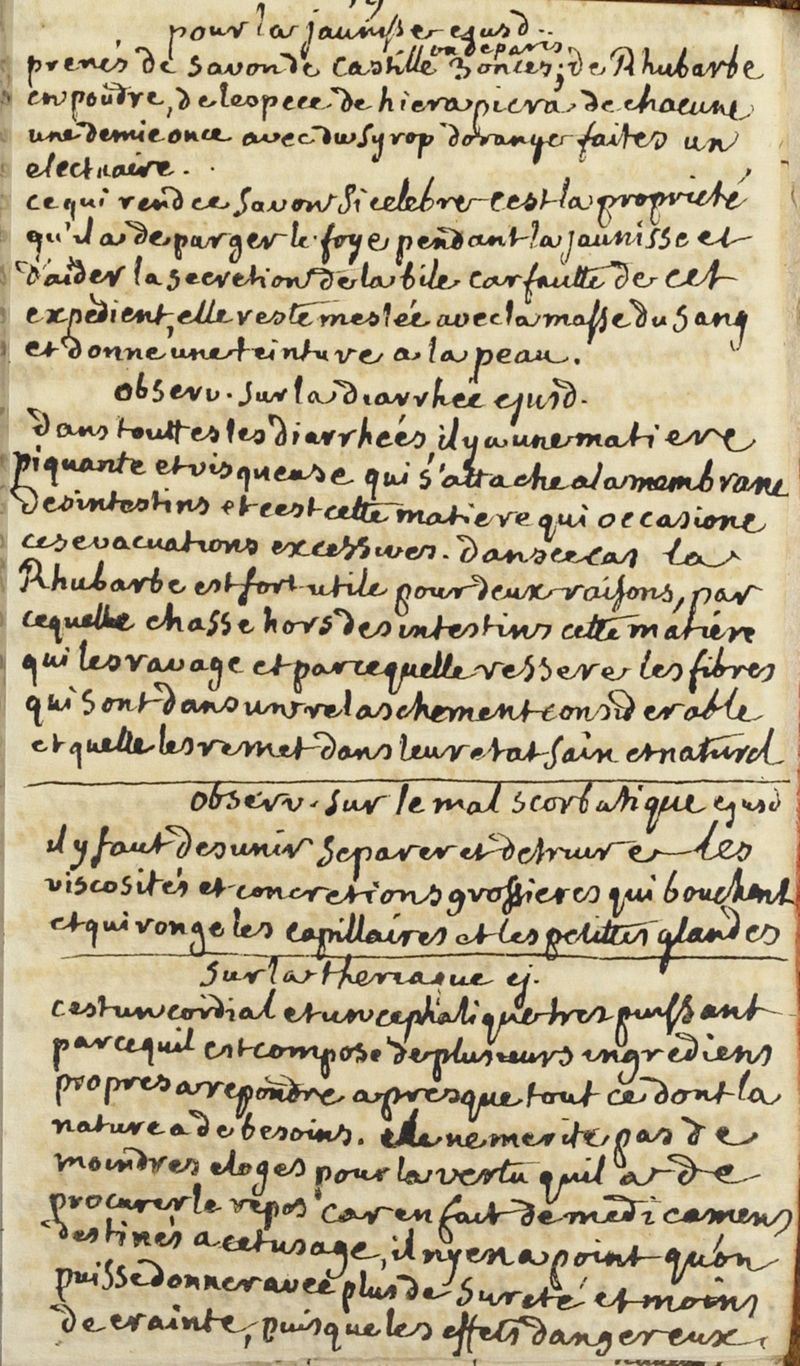 pour la jaunisse ejusd..
ou de paris
prenés de Savon de Castille 3 onces; de Rhubarbe
en poudre, de lespece de hiera picra de chacune
une demie once avec du Syrop dorange faites un
electuaire.
ce qui rend ce Savon Si celebre cest la proprieté
qu'il a de purger le foye pendant la jaunisse et
d'aider la secretion de la bile car faulte de cet
expedient, elle reste meslée avec la masse du sang
et donne une teinture a la peau.
observ. sur la diarrhée ejusd.
dans touttes les diarrhées, il y a une matiere
piquante et visqueuse qui s'attache a la membrane
des intestins et cest cette matiere qui occasione
ces evacuations excessives. dans ce cas la
Rhubarbe est fort utile pour deux raisons, par
ce quelle chasse hors des intestins cette matiére
qui les ravage et parce quelle ressere les fibres
qui sont dans un relaschement considerable
et quelle les remet dans leur etat sain et naturel
observ. sur le mal scorbutique ejusd
il y faut desunir separer et detruire les
viscosités et concretions grossieres qui bouchent
et qui ronge les capillaires et les petittes glandes
Sur la theriaque ej.
cest un cordial et un cephalique tres puissant
parce quil est compose de plusieurs ingrediens
propres a repondre a presque tout ce dont la
nature a de besoins. elle ne merite pas de
moindres eloges pour la vertu quil a de
procurer le repos car en fait de medicamens
destinés a cet usage, il ny en a point qu'on
puisse donner avec plus de sureté et moins
de crainte, puisque les effets dangereux